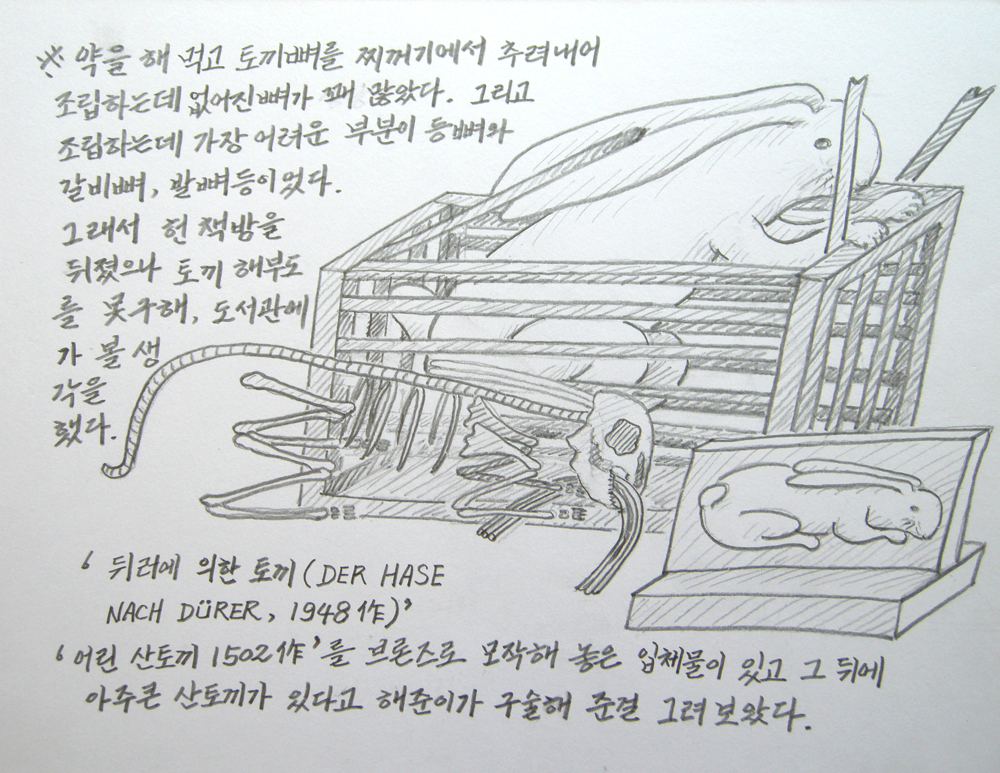 ※ 약을 해 먹고 토끼뼈를 찌꺼기에서 추려내어
조립하는데 없어진뼈가 꽤 많았다. 그리고
조립하는데 가장 어려운 부분이 등뼈와
갈비뼈, 발뼈등이었다.
그래서 헌 책방을
뒤졌으나 토끼 해부도
를 못구해, 도서관에
가 볼 생
각을
했다.
‘뒤러에 의한 토끼(DER HASE
NACH DÜRER, 1948作)’
‘어린 산토끼 1502作’를 브론즈로 모작해 놓은 입체물이 있고 그 뒤에
아주큰 산토끼가 있다고 해준이가 구술해 준걸 그려보았다.